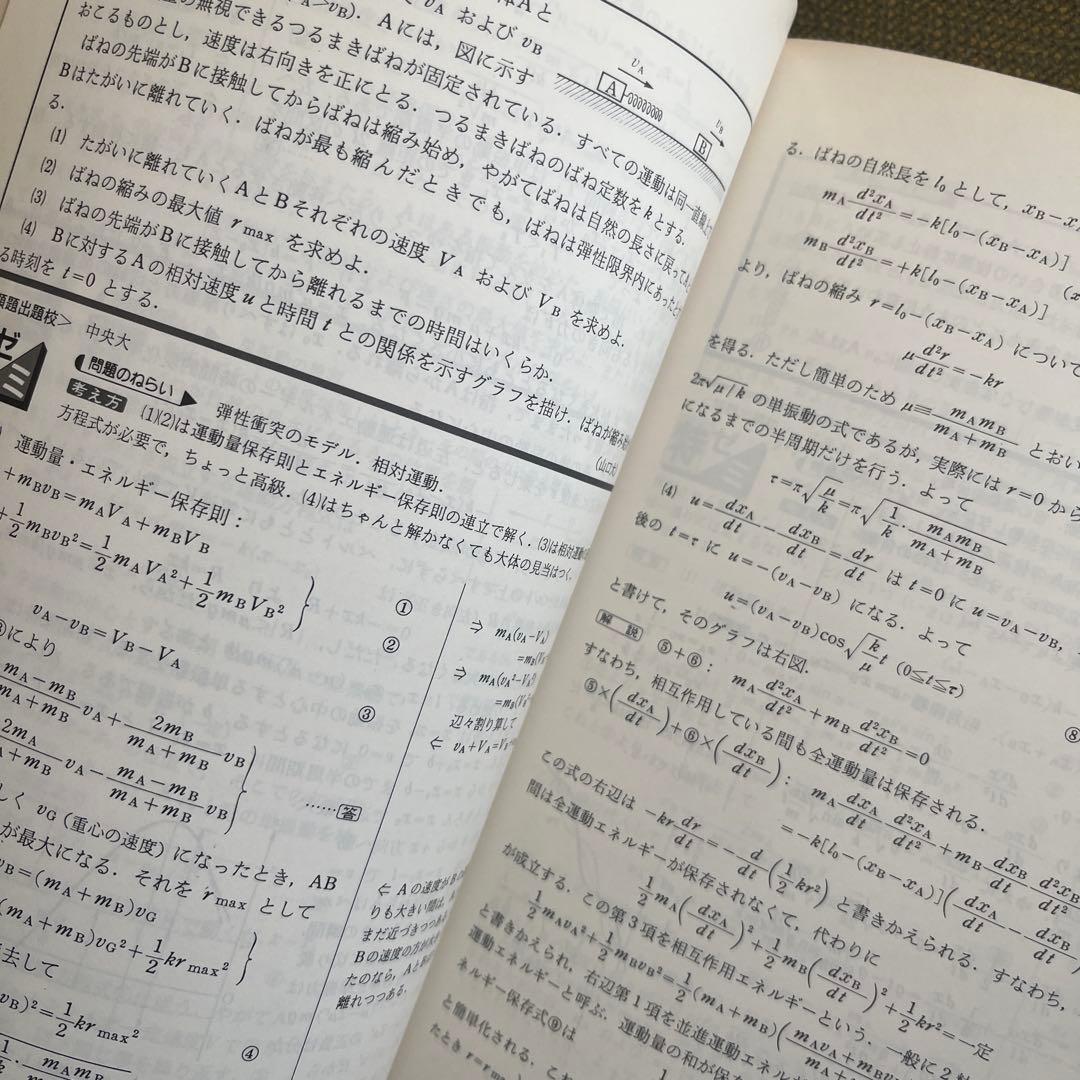 および v_B
量の無視できるつるまきばねが固定されている. すべての運動は同一直線上で
(v_A>v_B). Aには, 図に示す
おこるものとし, 速度は右向きを正にとる. つるまきばねのばね定数をkとする.
ばねの先端がBに接触してからばねは縮み始め, やがてばねは自然の長さに戻って
Bはたがいに離れていく. ばねが最も縮んだときでも, ばねは弾性限界内にあった
る.
(1) たがいに離れていくAとBそれぞれの速度 V_A および V_B を求めよ.
(2) ばねの縮みの最大値 r_max を求めよ.
(3) ばねの先端がBに接触してから離れるまでの時間はいくらか.
(4) Bに対するAの相対速度 u と時間 t との関係を示すグラフを描け. ばねが縮み
る時刻を t=0 とする.
v_A
A
v_B
B
題出題校> 中央大
(山口大
ゼミ
問題のねらい 弾性衝突のモデル. 相対運動.
考え方 (1)(2)は運動量保存則とエネルギー保存則の連立で解く. (3)は相対運動
方程式が必要で, ちょっと高級. (4)はちゃんと解かなくても大体の見当はつく.
運動量・エネルギー保存則:
+m_Bv_B=m_AV_A+m_BV_B ①
+1/2 m_Bv_B²=1/2 m_AV_A²+1/2 m_BV_B² ②
v_A-v_B=V_B-V_A ③
により
m_A-m_B/m_A+m_B v_A+2m_B/m_A+m_B v_B
2m_A/m_A+m_B v_A-m_A-m_B/m_A+m_B v_B
……答
しく v_G (重心の速度) になったとき, AB
が最大になる. それを r_max として
v_B=(m_A+m_B)v_G
(m_A+m_B)v_G²+1/2 kr_max²
去して
v_B)²=1/2 kr_max² ④
m_Am_B
⇒ m_A(v_A-V_A)
=m_B(V_B
⇒ m_A(v_A²-V_A²)
=m_B(V_B²
辺々割り算して
⇐ v_A+V_A=V_B
⇐ Aの速度が
りも大きい間は,
まだ近づきつつ
Bの速度の方が
たのなら, Aと
離れつつある.
る. ばねの自然長を l_0 として, x_B-x
m_A d²x_A/dt²=-k[l_0-(x_B-x_A)]
m_B d²x_B/dt²=+k[l_0-(x_B-x_A)]
より, ばねの縮み r=l_0-(x_B-x_A) について
μ d²r/dt²=-kr
を得る. ただし簡単のため μ≡m_Am_B/m_A+m_B とおい
2π√μ/k の単振動の式であるが, 実際には r=0 から
になるまでの半周期だけを行う. よって
τ=π√μ/k=π√1/k・m_Am_B/m_A+m_B
(4) u=dx_A/dt-dx_B/dt=dr/dt は t=0 に u=v_A-v_B,
後の t=τ に u=-(v_A-v_B) になる. よって
u=(v_A-v_B)cos√k/μ t (0≦t≦τ)
と書けて, そのグラフは右図. ⑧
解説 ⑤+⑥: m_A d²x_A/dt²+m_B d²x_B/dt²=0
すなわち, 相互作用している間も全運動量は保存される.
⑤×(dx_A/dt)+⑥×(dx_B/dt): m_A dx_A/dt d²x_A/dt²+m_B dx_B/dt d²x_B
=-k[l_0-(x_B-x_A)](dx_A/dt-dx_B/dt)
この式の右辺は -kr dr/dt=-d/dt(1/2 kr²) と書きかえられる. すなわち,
間は全運動エネルギーが保存されなくて, 代わりに
1/2 m_A(dx_A/dt)²+1/2 m_B(dx_B/dt)²+1/2 kr²=一定
が成立する. この第3項を相互作用エネルギーという. 一般に2
1/2 m_Av_A²+1/2 m_Bv_B²=1/2(m_A+m_B)(m_Av_A+m_Bv
と書きかえられ, 右辺第1項を並進運動エネ
運動エネルギーと呼ぶ. 運動量の和が保
ネルギー保存式⑨は
と簡単化される. これ
たとき r=r_m